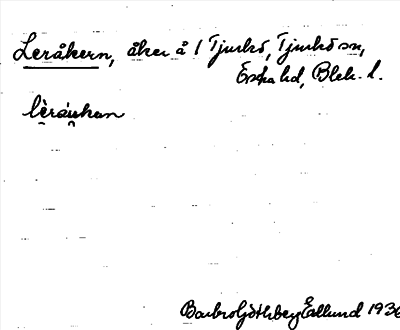 Leråkern, åker å 1 Tjurkö, Tjurkö sn,
Östra hd, Blek. l.
lẹ̀ráu̯kan
Barbro Götlberg Edlund 1936